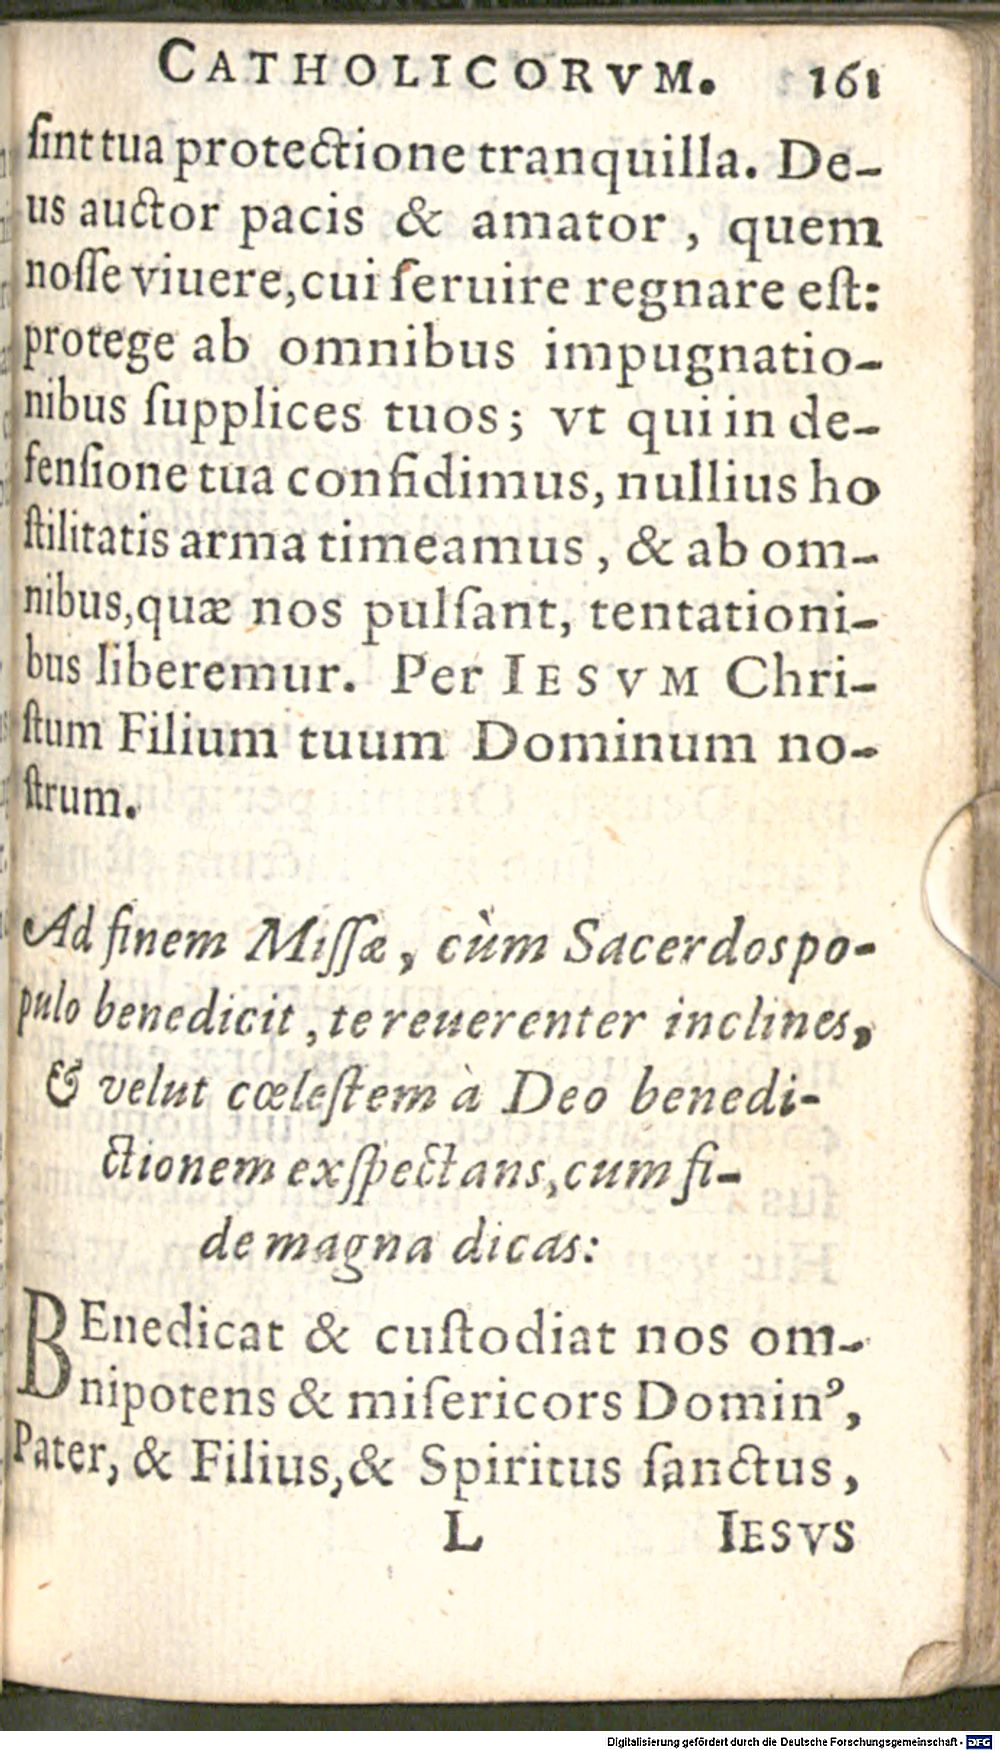 CATHOLICORVM. 161
ſint tua protectione tranquilla. De-
us auctor pacis & amator, quem
noſſe viuere, cui ſeruire regnare eſt:
protege ab omnibus impugnatio-
nibus ſupplices tuos; vt qui in de-
fenſione tua confidimus, nullius ho
ſtilitatis arma timeamus, & ab om-
nibus, quæ nos pulſant, tentationi-
bus liberemur. Per IESVM Chri-
ſtum Filium tuum Dominum no-
ſtrum.
Ad finem Miſſæ, cùm Sacerdos po-
pulo benedicit, te reuerenter inclines,
& velut cœleſtem à Deo benedi-
ctionem exſpectans, cum fi-
de magna dicas:
BEnedicat & cuſtodiat nos om-
nipotens & miſericors Dominꝰ,
Pater, & Filius, & Spiritus ſanctus,
L IESVS
Digitalisierung gefördert durch die Deutsche Forschungsgemeinschaft - DFG